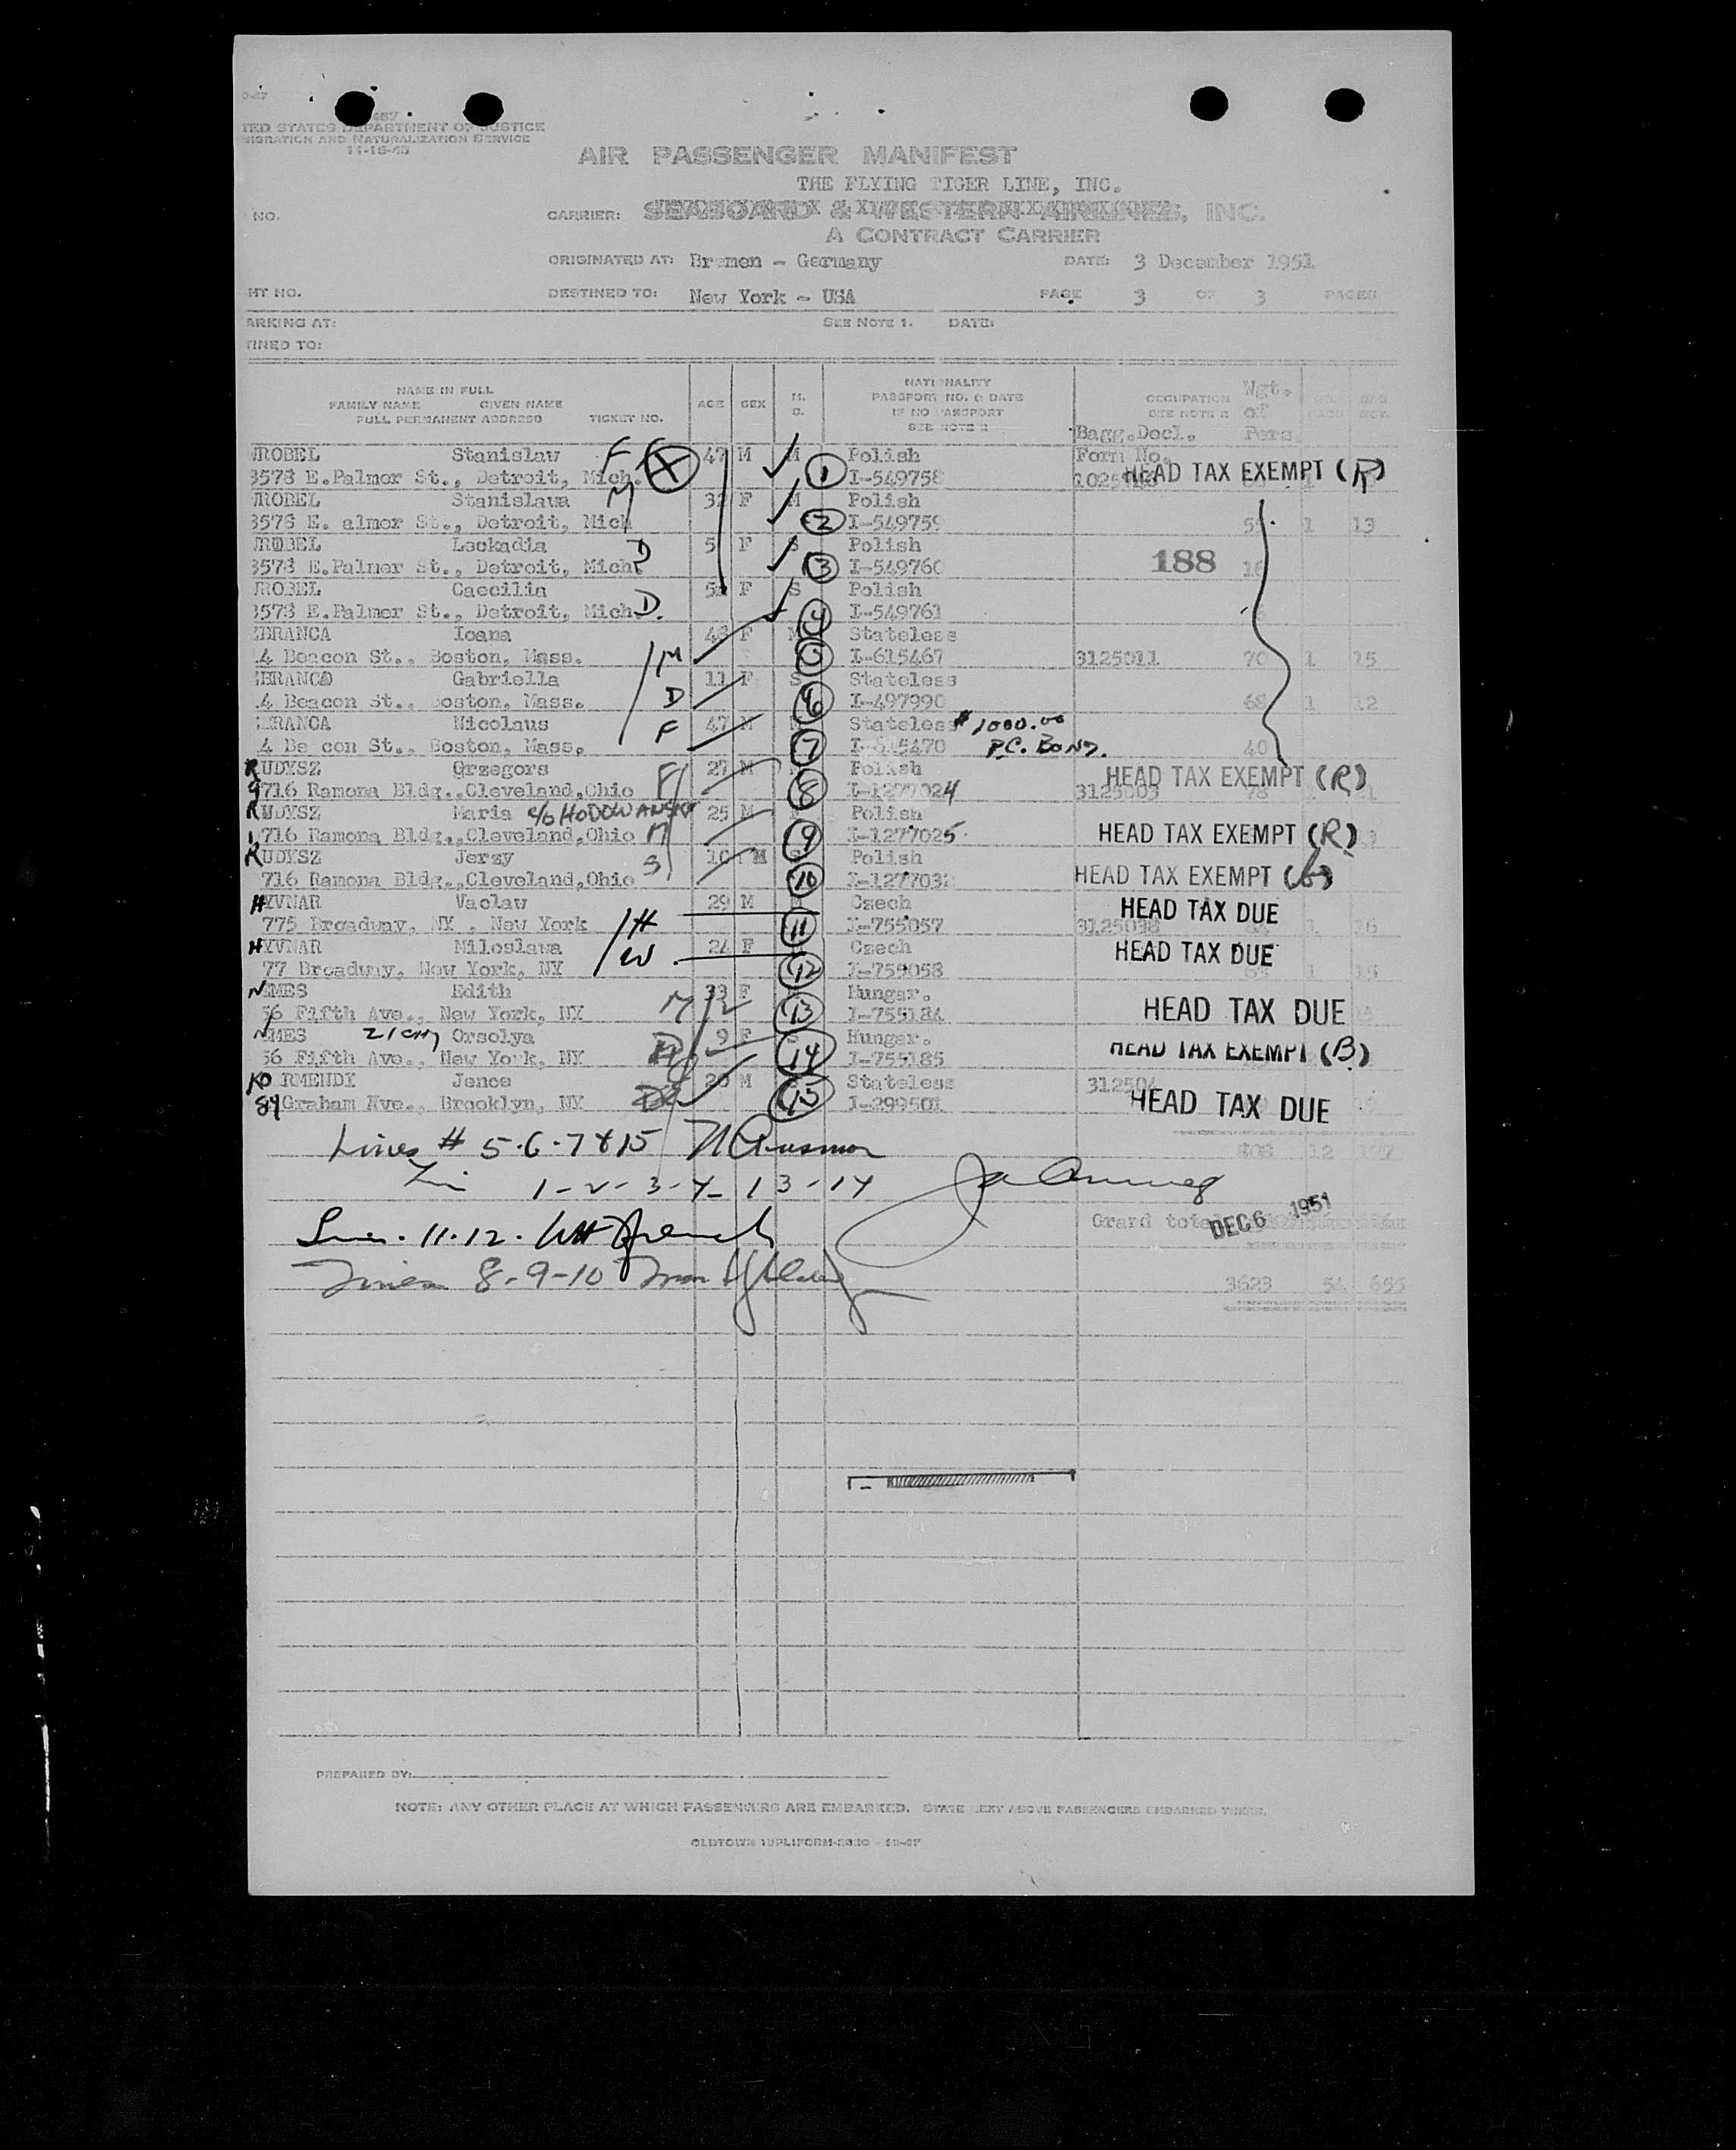 TED STATES DEPARTMENT OF JUSTICE
MIGRATION AND NATURALIZATION SERVICE
11-15-45
AIR PASSENGER MANIFEST
THE FLYING TIGER LINE, INC.
NO. CARRIER: SEABOARD & WESTERN AIRLINES, INC.
A CONTRACT CARRIER
ORIGINATED AT: Bremen - Germany DATE: 3 December 1951
HT NO. DESTINED TO: New York - USA PAGE 3 OF 3 PAGES
ARKING AT: SEE NOTE 1. DATE:
TINED TO:
NAME IN FULL
FAMILY NAME GIVEN NAME
FULL PERMANENT ADDRESS TICKET NO.
AGE SEX M. S.
NATIONALITY
PASSPORT NO. & DATE
IF NO PASSPORT
SEE NOTE 2
OCCUPATION
SEE NOTE 2
Wgt. of Pers
Bagg.Decl.
Form No.
WROBEL Stanislaw F 47 M M 1 Polish
3573 E.Palmer St., Detroit, Mich. I-549758 HEAD TAX EXEMPT (R)
WROBEL Stanislawa M 32 F M Polish
3573 E. almer St., Detroit, Mich 2 I-549759 55 1 13
WROBEL Leokadia D 5 F S Polish
3573 E.Palmer St., Detroit, Mich. 3 I-549760 188
WROBEL Caecilia F S Polish
3573 E.Palmer St., Detroit, Mich D. 4 I-549761
BRANCA Ioana 48 F M Stateless
4 Beacon St., Boston, Mass. M 5 I-615467 3125011 70 1 15
BRANCA Gabriella 11 F S Stateless
4 Beacon St., Boston, Mass. D 6 I-497990 68 1 12
BRANCA Nicolaus F 47 M Stateless $1000.00
4 Be con St., Boston, Mass. 7 I-615470 P.C. BOND. 40
RUDYSZ Grzegors 27 M Polish HEAD TAX EXEMPT (R)
9716 Ramona Bldg.,Cleveland,Ohio F 8 I-1277024
RUDYSZ Maria c/o HODOWANSKY 25 M Polish
716 Ramona Bldg.,Cleveland,Ohio M 9 I-1277025 HEAD TAX EXEMPT (R)
RUDYSZ Jerzy S 10 M Polish
716 Ramona Bldg.,Cleveland,Ohio 10 I-1277032 HEAD TAX EXEMPT
HYVNAR Vaclaw 29 M Czech HEAD TAX DUE
775 Broadway, NY , New York H 11 I-755057 3125038 1 16
HYVNAR Miloslawa 24 F Czech HEAD TAX DUE
77 Broadway, New York, NY W. 12 I-755058 1 15
NEMES Edith 33 F Hungar.
56 Fifth Ave., New York, NY M 13 I-755184 HEAD TAX DUE
NEMES ZICHY Orsolya 9 F S Hungar.
56 Fifth Ave., New York, NY 14 I-755185 HEAD TAX EXEMPT (B)
KORMENDY Jenoe 20 M Stateless 312504
84 Graham Ave., Brooklyn, NY 15 I-299501 HEAD TAX DUE
Lines # 5-6-7 & 15
808 12 157
1-2-3-4-13-14
Grand total DEC 6 1951
Lines 11.12.
Lines 8-9-10
3623 54 655
PREPARED BY:
NOTE: ANY OTHER PLACE AT WHICH PASSENGERS ARE EMBARKED. STATE NEXT ABOVE PASSENGERS EMBARKED THERE.